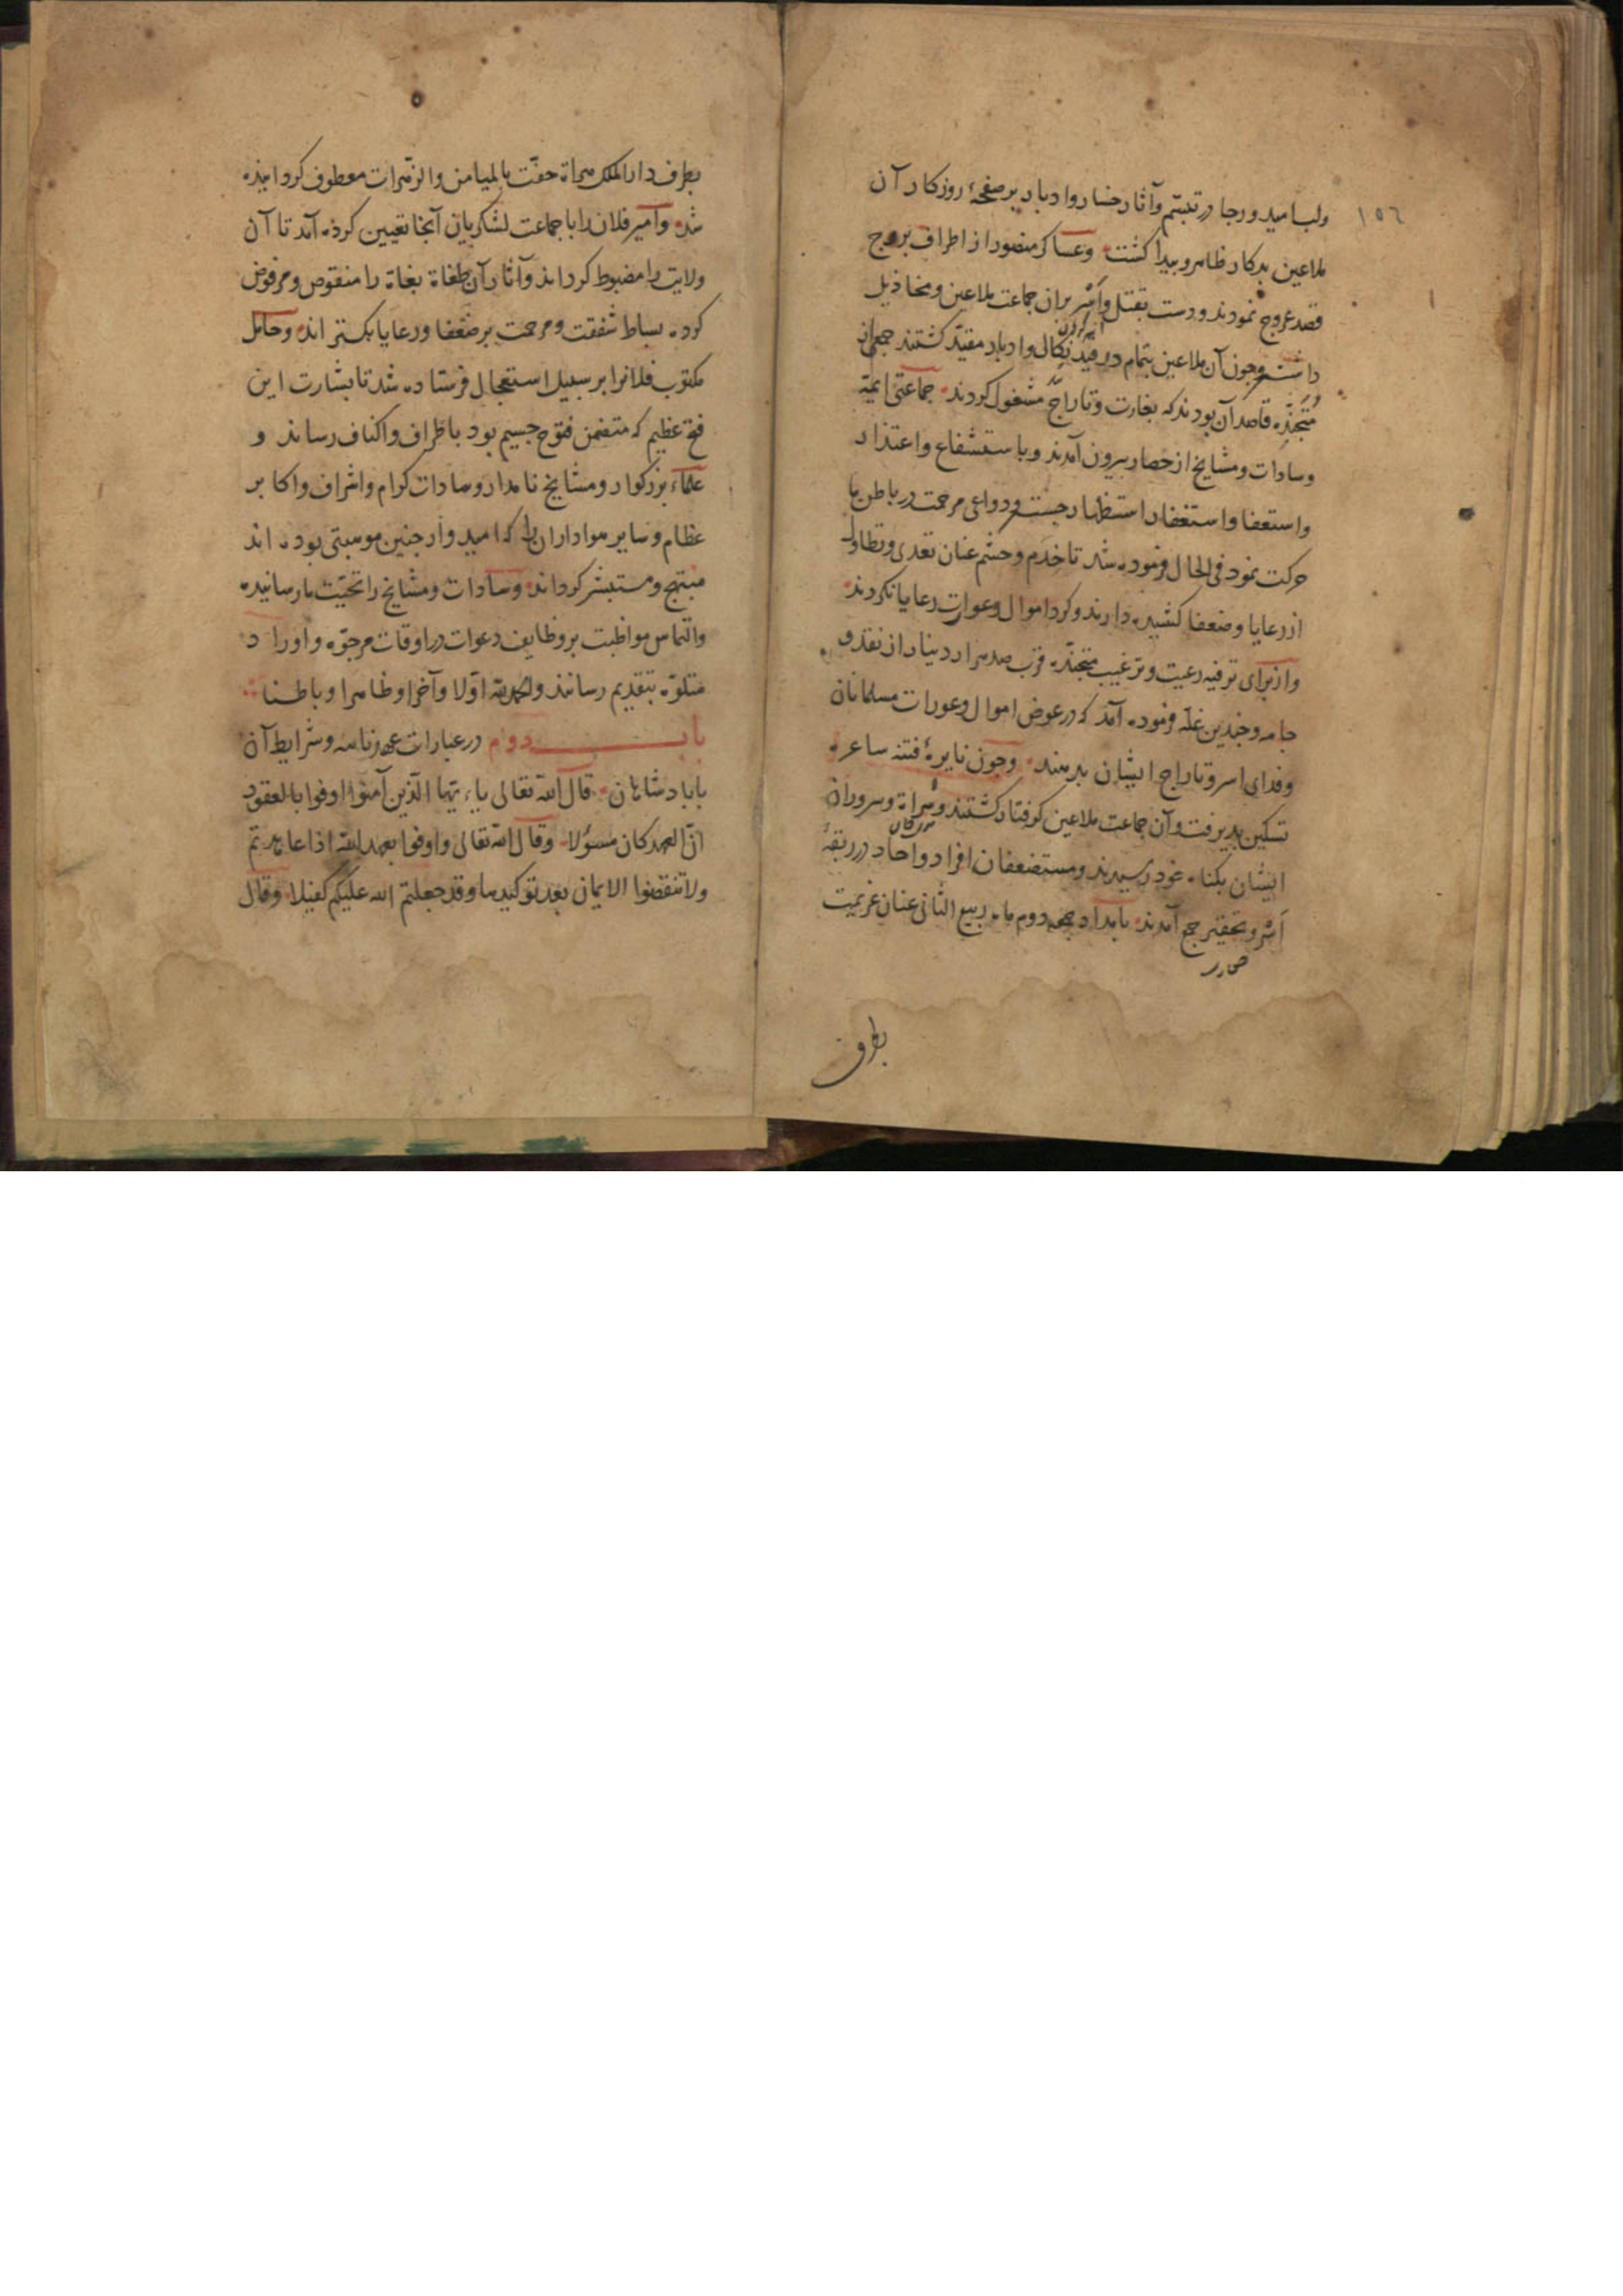 ١٥٦
ولب امید و رجا در تبسّم و آثار خسار و ادبار بر صفحهٔ روزکار آن
ملاعین بدکار ظاهر و بیدا کشت وعساکر منصور از اطراف بروج
قصد عروج نمودند و دست بقتل و اَسْر بران جماعت ملاعین و مخاذیل
داشتند وجون آن ملاعین بتمام در قید نکال و ادبار مقیّد کشتند جمعی از
مُتَجنِّدِه قاصد آن بودند که بغارت و تاراج مشغول کردند جماعتی ایمّهٔ
وسادات ومشایخ از حصار بیرون آمدند و باستشفاع واعتذار
واستعفا واستغفار استظهار جستند ودواعی مرحمت در باطن ما
حرکت نمود فی الحال فرموده شد تا خدم وحشم عنان تعدی وتطاول
از رعایا وضعفا کشیده دارند وکرد اموال وعورات رعایا نکردند
واز برای ترفیه رعیت وترغیب متجنّده قرب صد هزار دینار از نقد و
جامه وجندین غلّه فرموده آمد که در عوض اموال وعورات مسلمانان
وفدای اسر وتاراج ایشان بدهند وجون نایرهٔ فتنه ساعره
تسکین بدیرفت وآن جماعت ملاعین کرفتار کشتند وسُراة وسروران
ایشان بکناه خود رسیدند ومستضعفان افراد واحاد در ربقهٔ
اَسْر وتحقیر جمع آمدند بامداد جمعه دوم ماه ربیع الثانی عنان عزیمت
بطرف
بطرف دار الملک هراة حفّت بالمیامن والزهرات معطوف کردانیده
شد وامیر فلان را با جماعت لشکریان آنجا تعیین کرده آمد تا آن
ولایت را مضبوط کرداند وآثار آن طغاة بغاة را منقوص ومرفوض
کرده بساط شفقت ومرحمت بر ضعفا ورعایا بکستراند وحامل
مکتوب فلانرا بر سبیل استعجال فرستاده شد تا بشارت این
فتح عظیم که متضمن فتوح جسیم بود باطراف واکناف رساند و
علماء بزرکوار ومشایخ نامدار وسادات کرام واشراف واکابر
عظام وسایر هواداران را که امیدوار جنین موهبتی بوده اند
مبتهج ومستبشر کرداند وسادات ومشایخ را تحیّت ما رسانیده
والتماس مواظبت بر وظایف دعوات در اوقات مرجوّه واوراد
متلوّه بتقدیم رسانند والحمد لله اوّلا وآخرا وظاهرا وباطنا
باب دوم در عبارات عهدنامه وشرایط آن
با بادشاهان قال الله تعالی یاءیّها الّذین آمنوا اوفوا بالعقود
انّ العهد کان مسؤلا وقال الله تعالی واوفوا بعهد الله اذا عاهدتم
ولا تنقضوا الایمان بعد توکیدها وقد جعلتم الله علیکم کفیلا وقال